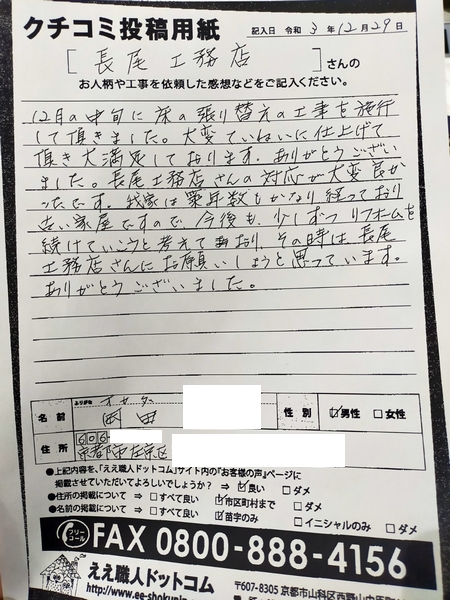 クチコミ投稿用紙
記入日 令和 3 年 12 月 29 日
[ 長尾工務店 ] さんの
お人柄や工事を依頼した感想などをご記入ください。
12月の中旬に床の張り替えの工事を施行
して頂きました。大変ていねいに仕上げて
頂き大満足しております。ありがとうござい
ました。長尾工務店さんの対応が大変良か
ったです。我家は築年数もかなり経っており
古い家屋ですので、今後も、少しずつリフォームを
続けていこうと考えており、その時は、長尾
工務店さんにお願いしようと思っています。
ありがとうございました。
ふりがな
名前 性別 ☑男性 □女性
住所 606
京都市左京区
●上記内容を、「ええ職人ドットコム」サイト内の『お客様の声』ページに
掲載させていただいてよろしいでしょうか？ ⇒ ☑良い □ダメ
●住所の掲載について ⇒ □すべて良い ☑市区町村まで □ダメ
●名前の掲載について ⇒ □すべて良い ☑苗字のみ □イニシャルのみ □ダメ
フリーコール FAX 0800-888-4156
ええ職人ドットコム
http://www.ee-shokunin
〒607-8305 京都市山科区西野山中